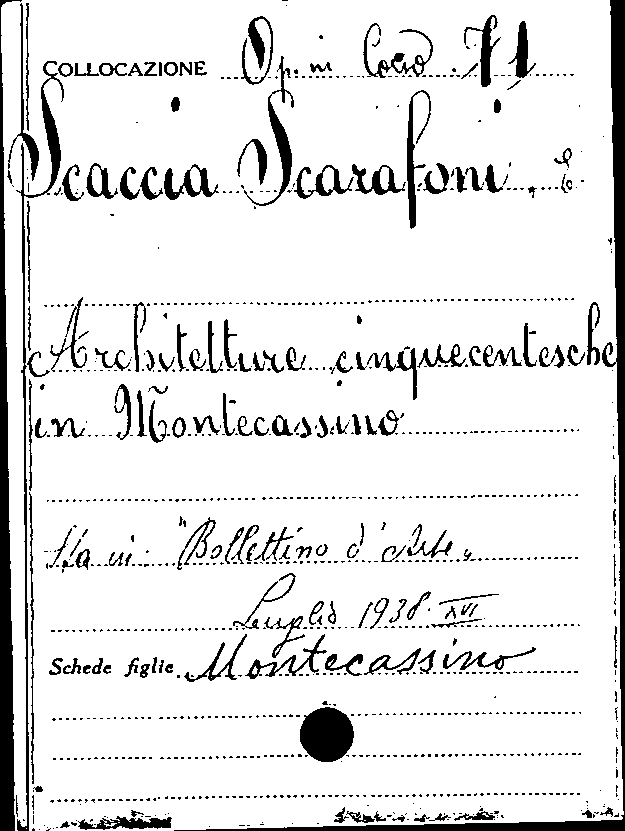 COLLOCAZIONE Op. in Corso 71
Scaccia Scarafoni, E.
Architetture cinquecentesche
in Montecassino
Sta in: "Bollettino d'Arte"
Luglio 1938-XVI
Schede figlie Montecassino